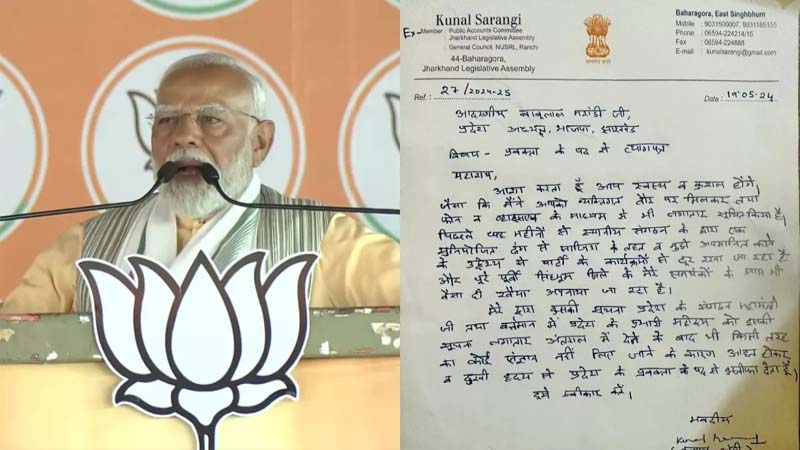 Kunal Sarangi
Ex- Member : Public Accounts Committee
: Jharkhand Legislative Assembly
: General Council, NUSRL, Ranchi
44-Baharagora,
Jharkhand Legislative Assembly
Baharagora, East Singhbhum
Mobile : 9031500007, 9031185155
Phone : 06594-224214/15
Fax : 06594-224888
E-mail : kunalsarangi@gmail.com
Ref.: 27/2024-25
Date : 19.05.24
आदरणीय बाबूलाल मरांडी जी,
प्रदेश अध्यक्ष, भाजपा, झारखंड
विषय - प्रवक्ता के पद से त्यागपत्र
महाशय,
आशा करता हूँ आप स्वस्थ व कुशल होंगे।
जैसा कि मैंने आपको व्यक्तिगत तौर पर मिलकर तथा
फोन व व्हाट्सएप के माध्यम से भी लगातार सूचित किया है।
पिछले महीनों से स्थानीय संगठन के द्वारा एक
सुनियोजित ढंग से साजिश के तहत व मुझे अपमानित करने
के उद्देश्य से पार्टी के कार्यक्रमों से दूर रखा जा रहा है
और पूरे पूर्वी सिंहभूम जिले के मेरे समर्थकों के साथ भी
वैसा ही रवैया अपनाया जा रहा है।
मेरे द्वारा इसकी सूचना प्रदेश के संगठन महामंत्री
जी तथा वर्तमान में प्रदेश के प्रभारी महोदय को इसकी
सूचना लगातार अंतराल में देने के बाद भी किसी तरह
का कोई संज्ञान नहीं लिए जाने के कारण आहत होकर
व दुखी हृदय से प्रदेश के प्रवक्ता के पद से इस्तीफा देता हूँ।
इसे स्वीकार करें।
भवदीय
Kunal